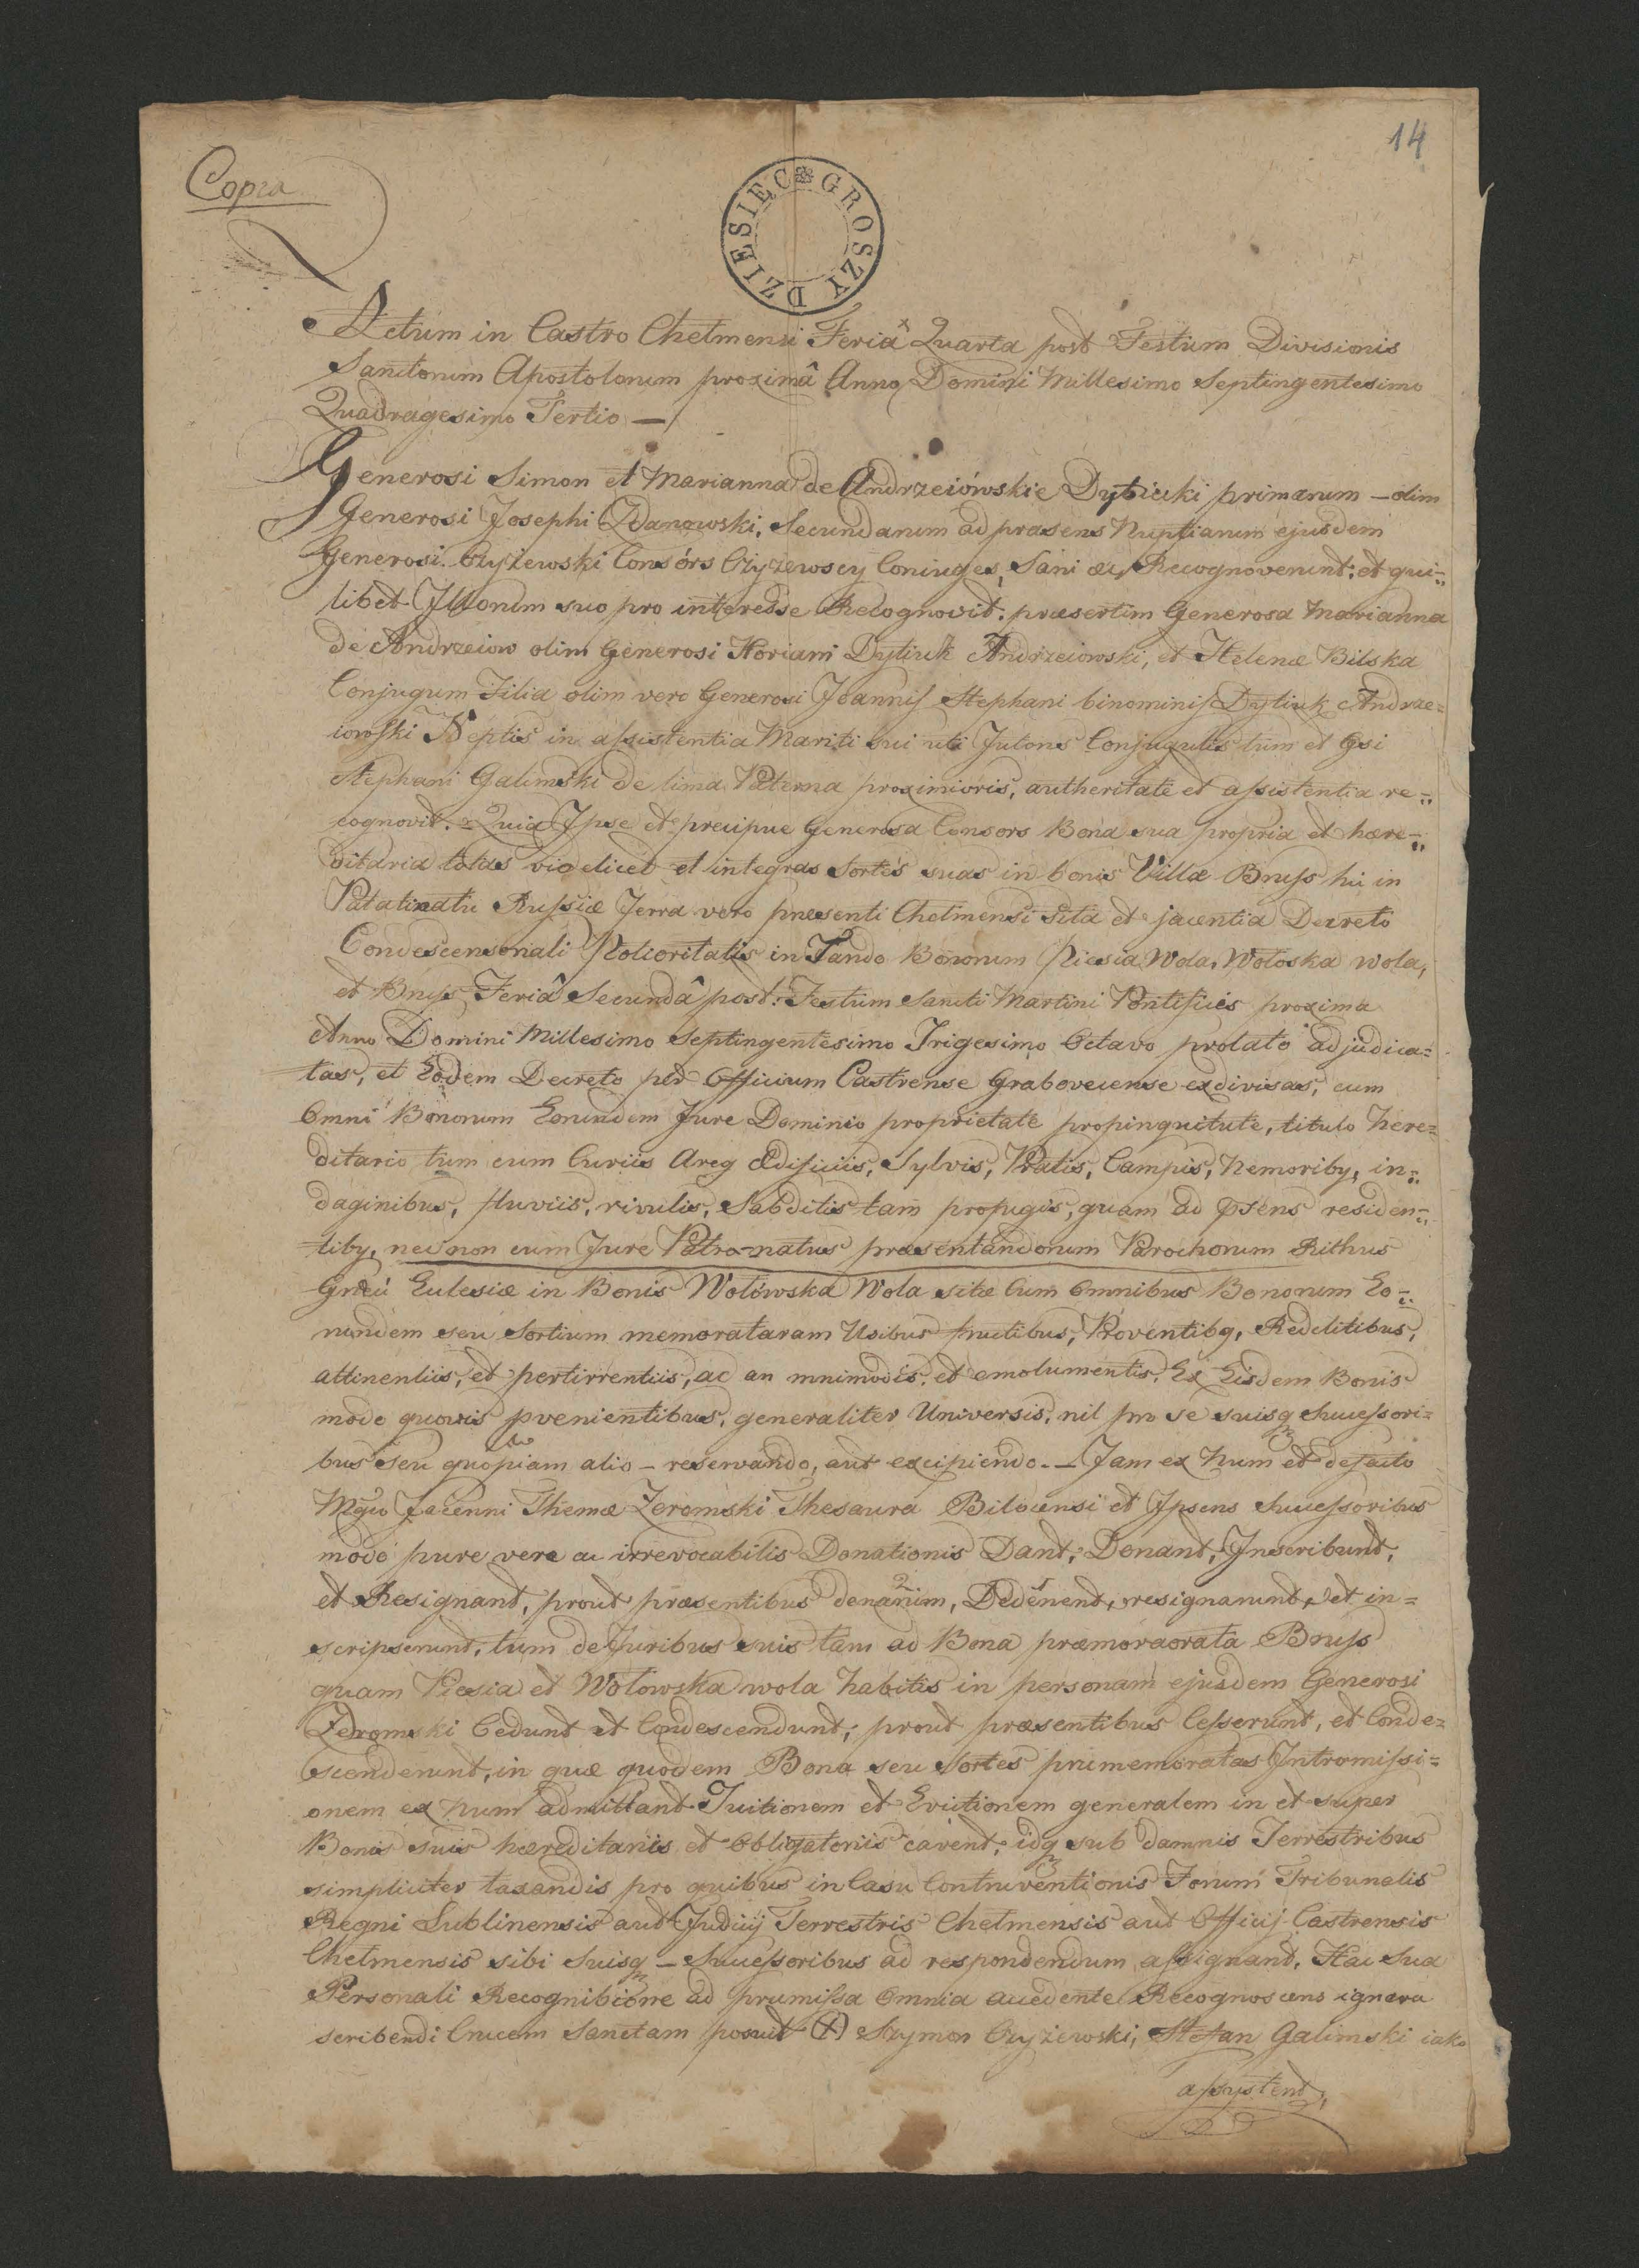 14
Copia
DZIESIĘC GROSZY
Actum in Castro Chelmensi Feriâ Quarta post Festum Divisionis
Sanctorum Apostolorum proximâ Anno Domini Millesimo Septingentesimo
Quadragesimo Tertio —
Generosi Simon et Marianna de Andrzeiówskie Dytiuki primarum — olim
Generosi Josephi Zdanowski, Secundarum ad præsens Nuptiarum ejusdem
Generosi Czyżewski Consórs Czyżewscy Coniuges, Sani Recognoverunt, et qui-
libet Illorum suo pro interesse Recognovit: præsertim Generosa Marianna
de Andrzeiow olim Generosi Floriani Dytiuk Andrzeiowski, et Helenæ Bilska
Conjugum Filia olim vero Generosi Joannis Stephani binominis Dytiuk Andrze=
iowski Neptis in assistentia Mariti sui uti Tutoris Conjugalis tum et Gsi
Stephani Galimski de linea Paterna proximioris, autheritate et assistentia re-
cognovit. Quia Ipse et precipue Generosa Consors Bona sua propria et hære-
ditaria totas videlicet et integras Sortes suas in bonis Villæ Bruss hic in
Palatinatu Russiæ Terra vero præsenti Chelmensi sita et jacentia Decreto
Condescensonali Potioritatis in Fundo Bonorum Piesia Wola, Wołoska wola,
et Bruss Feriâ Secundâ post Festum Sancti Martini Pontificis proxima
Anno Domini Millesimo Septingentesimo Trigesimo Octavo prolato adjudica=
tas, et Eodem Decreto per Officium Castrense Grabovecense exdivisas, cum
Omni Bonorum Eorundem Jure Dominio proprietate propinquitute, titulo here=
ditario tum cum Curiis Areg Ædificiis, Sylvis, Pratis, Campis, Nemoriby, in-
daginibus, fluviis, rivulis, Sabditis tam profugis, quam ad psens residen-
tiby, nec non cum Jure Patro-natus præsentandorum Parochorum Rithus
Græci Eclesiæ in Bonis Wołówska Wola sitæ Cum Omnibus Bonorum Eo-
rundem seu Sortium memorataram Usibus fructibus, Proventibq, Redditibus,
attinentiis, et pertirrentiis, ac an mnimodis, et emolumentis, Ex Eisdem Bonis
modo quovis pvenientibus, generaliter Universis, nil pro se suisq Successori=
bus seu quopiam alio — reservando, aut excipiendo. — Jam ex Nunc et defacto
Mgco Jacenni Themæ Żeromski Thesaura Bilscensi et Ipsens Successoribus
modo pure vere ac irrevocabilis Donationis Dant, Donant, Inscribunt,
et Resignant, prout præsentibus denarunt, Dederunt, resignarunt, et in=
scripserunt, tum de Juribus suis tam ad Bona præmoraorata Bruss
quam Piesia et Wołowska wola habitis in personam ejusdem Generosi
Żeromski Cedunt et Condescendunt, prout præsentibus Cesserunt, et Conde=
scenderunt, in quæ quodem Bona seu Sortes præmemoratas Intromissi=
onem ex nunc admittant Tuitionem et Evictionem generalem in et super
Bonis suis hæreditariis et Obligatoriis cavent, idq sub damnis Terrestribus
simpliciter taxandis pro quibus in Casu Contraventionis Forum Tribunalis
Regni Lublinensis aut Judicij Terrestris Chelmensis aut Officij Castrensis
Chelmensis sibi Suisq — Successoribus ad respondendum assignant. Hac Sua
Personali Recognibione ad præmissa Omnia accedente Recognoscens ignara
scribendi Crucem Sanctam posuit (+) Szymon Czyżewski, Stefan Galimski iako
assystent,